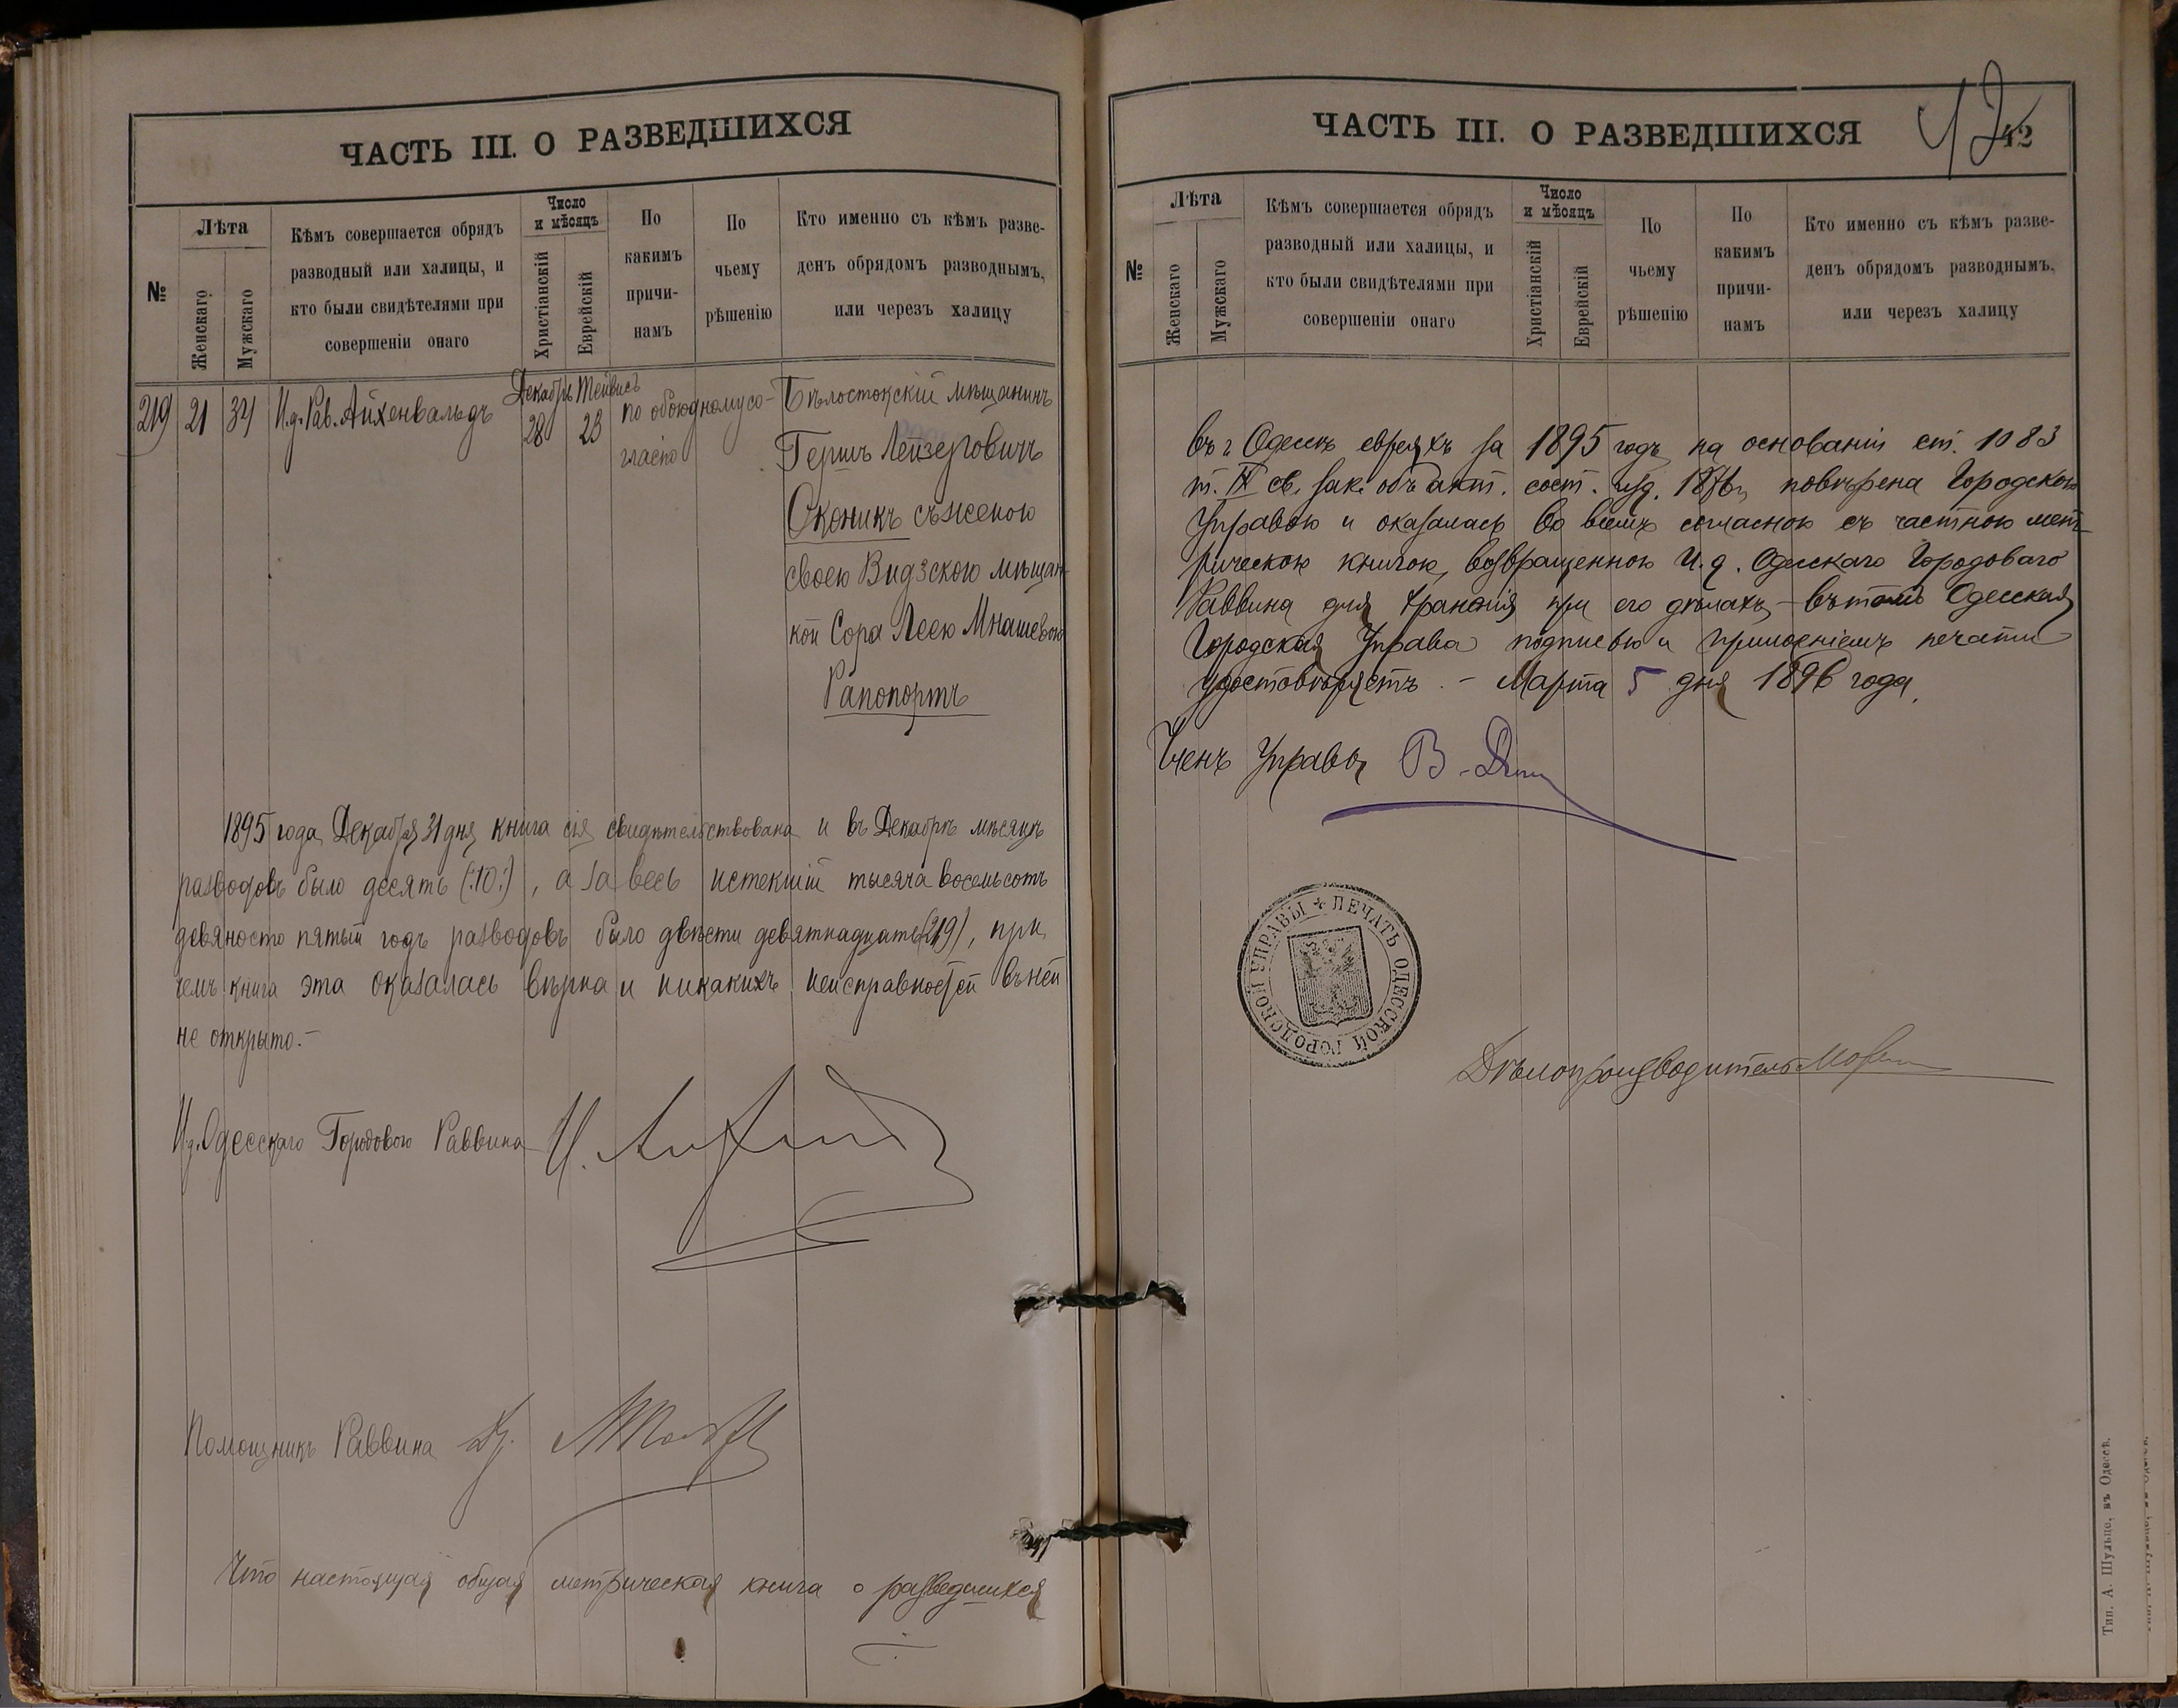 ЧАСТЬ III. О РАЗВЕДШИХСЯ
№
Лѣта
Женскаго
Мужскаго
Кѣмъ совершается обрядъ
разводный или халицы, и
кто были свидѣтелями при
совершеніи онаго
Число
и мѣсяцъ
Христіанскій
Еврейскій
По
какимъ
причи-
намъ
По
чьему
рѣшенію
Кто именно съ кѣмъ разве-
денъ обрядомъ разводнымъ,
или черезъ халицу
219
21
34
И.д. Рав. Айхенвальдъ
Декабрь
28
Тейвисъ
23
по обоюдному со-
гласію
Бѣлостокскій мѣщанинъ
Гершъ Лейзеровичъ
Оконикъ съ женою
своею Видзскою мѣщан-
кой Сора Леею Мнашевою
Рапопортъ
1895 года Декабря 31 дня книга сія свидѣтельствована и въ Декабрѣ мѣсяцѣ
разводовъ было десять (:10:), а за весь истекшій тысяча восемьсотъ
девяносто пятый годъ разводовъ было двѣсти девятнадцать (219), при
чемъ книга эта оказалась вѣрна и никакихъ неисправностей въ ней
не открыто.-
И.д. Одесскаго Городового Раввина
Помощникъ Раввина Др.
Что настоящая общая метрическая книга о разведшихся
ЧАСТЬ III. О РАЗВЕДШИХСЯ
42
42
№
Лѣта
Женскаго
Мужскаго
Кѣмъ совершается обрядъ
разводный или халицы, и
кто были свидѣтелями при
совершеніи онаго
Число
и мѣсяцъ
Христіанскій
Еврейскій
По
чьему
рѣшенію
По
какимъ
причи-
намъ
Кто именно съ кѣмъ разве-
денъ обрядомъ разводнымъ,
или черезъ халицу
въ г. Одессѣ евреяхъ за 1895 годъ на основаніи ст. 1083
т. IX св. зак. объ акт. сост. изд. 1876 г. повѣрена Городскою
Управою и оказалась во всемъ согласною съ частною мет-
рическою книгою, возвращенною И.д. Одесскаго Городоваго
Раввина для храненія при его дѣлахъ,- въ томъ Одесская
Городская Управа подписью и приложеніемъ печати
удостовѣряетъ.- Марта 5 дня 1896 года.
Членъ Управы В.
ПЕЧАТЬ ОДЕССКОЙ ГОРОДСКОЙ УПРАВЫ
Дѣлопроизводитель
Тип. А. Шульце, въ Одессѣ.